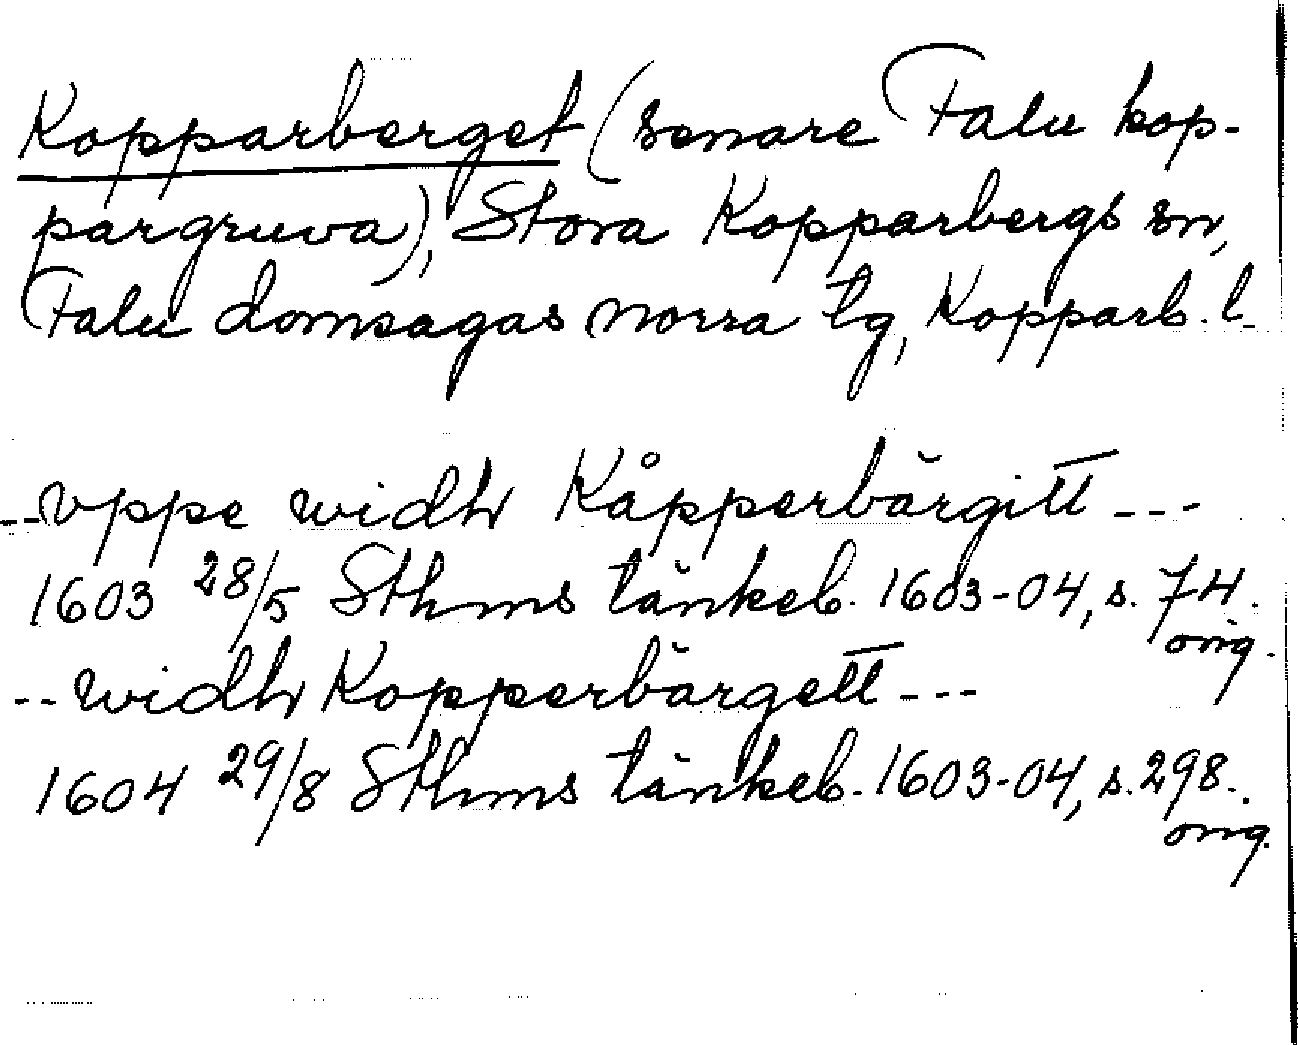 Kopparberget (senare Falu kop-
pargruva), Stora Kopparbergs sn,
Falu domsagas norra tg, Kopparb. l.
--vppe widh Kåpperbärgitt---
1603 28/5 Sthms tänkeb. 1603-04, s. 74.
orig.
--widh Kopperbärgett---
1604 29/8 Sthms tänkeb. 1603-04, s. 298.
orig.